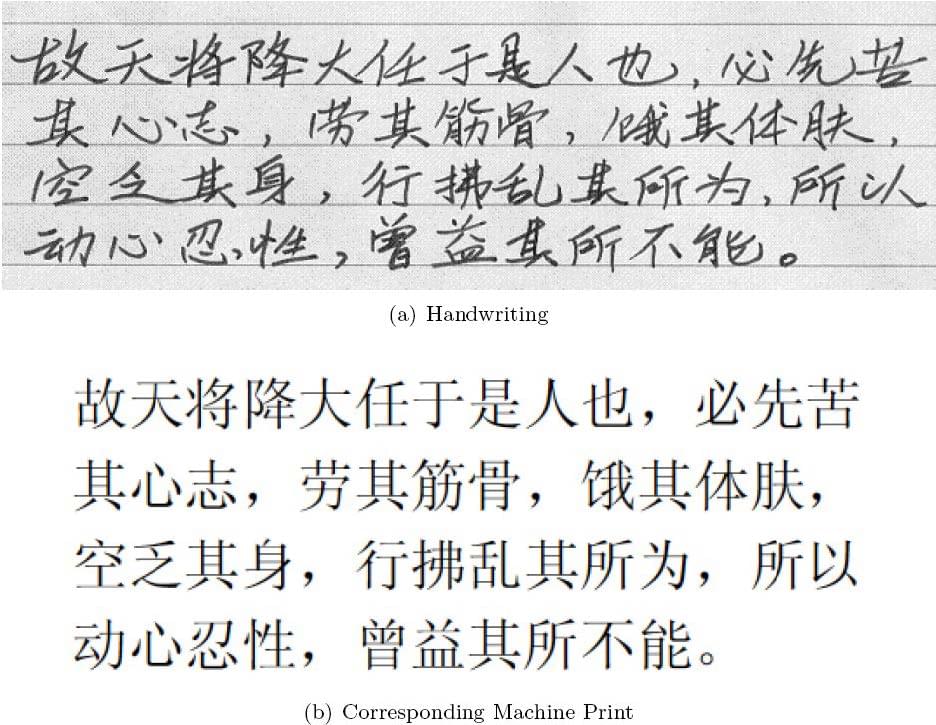 故天将降大任于是人也，必先苦
其心志，劳其筋骨，饿其体肤，
空乏其身，行拂乱其所为，所以
动心忍性，曾益其所不能。
(a) Handwriting
故天将降大任于是人也，必先苦
其心志，劳其筋骨，饿其体肤，
空乏其身，行拂乱其所为，所以
动心忍性，曾益其所不能。
(b) Corresponding Machine Print